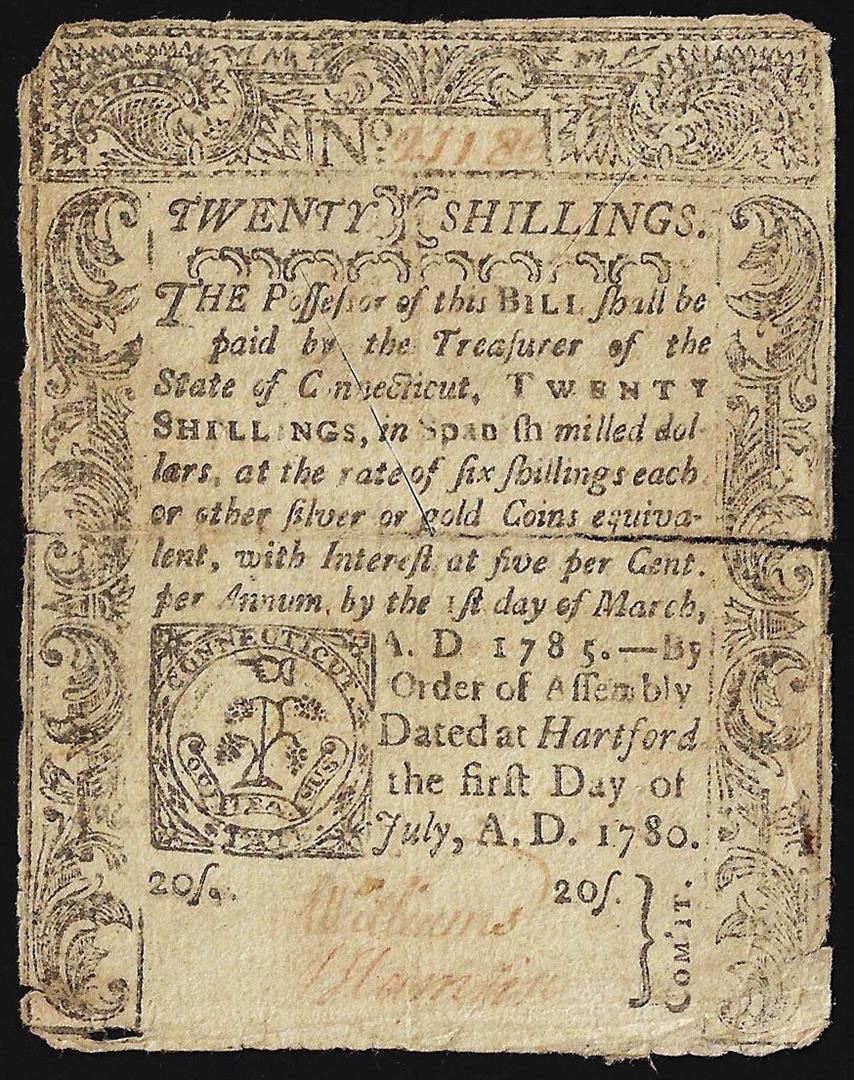 No. 2118
TWENTY SHILLINGS.
THE Poſſeſſor of this BILL ſhall be
paid by the Treaſurer of the
State of Connecticut, TWENTY
SHILLINGS, in Spaniſh milled dol-
lars, at the rate of ſix ſhillings each
or other ſilver or gold Coins equiva-
lent, with Intereſt at five per Cent.
per Annum, by the 1ſt day of March,
A. D 1785.—By
Order of Aſſembly
Dated at Hartford
the firſt Day of
July, A. D. 1780.
CONNECTICUT
SUS
20ſ.
20ſ.
Williams
COM'IT.